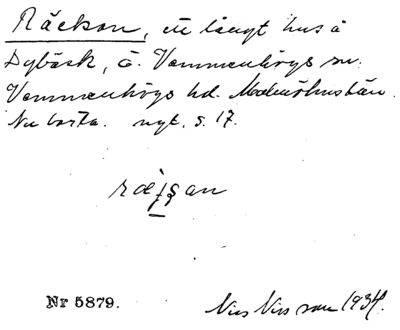 Räckan, ett långt hus å
Dybäck, Ö. Vemmenhögs sn.
Vemmenhögs hd. Malmöhus län.
Nu borta. nyt. s. 17.
Nr 5879. Nils Nilsson 1934.